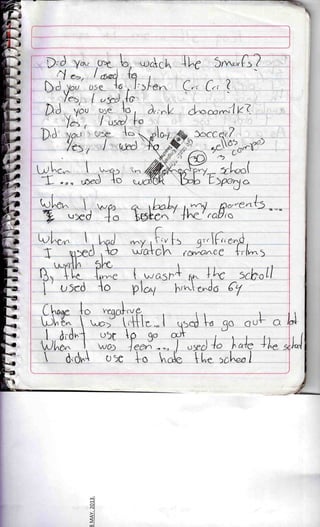 Did you use to watch the Smurfs?
Yes, I used to
Did you use to listen Cri Cri?
Yes, I used to
Did you use to drink chocomilk?
Yes, I used to
Did you use to play soccer?
Yes, I used to
sellos
3 campos
When I was in school
I... used to watch Bob Esponja
When I was a baby, my parents...
I used to listen the radio
When I had my firts girlfriend
I used to watch romance films
with she
By the time I wasn't in the scholl
I used to play nintendo 64
Change to negative
When I was little... I used to go out a lot
I didn't use to go out
When I was teen... I used to hate the school
I didn't use to hate the school
8 MAY 2013